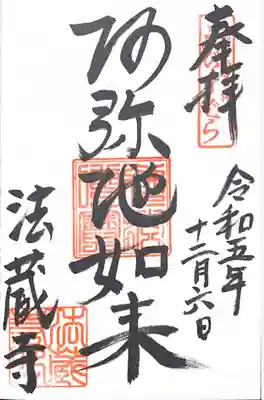 奉拝
令和五年
十二月六日
阿弥陀如来
法蔵寺